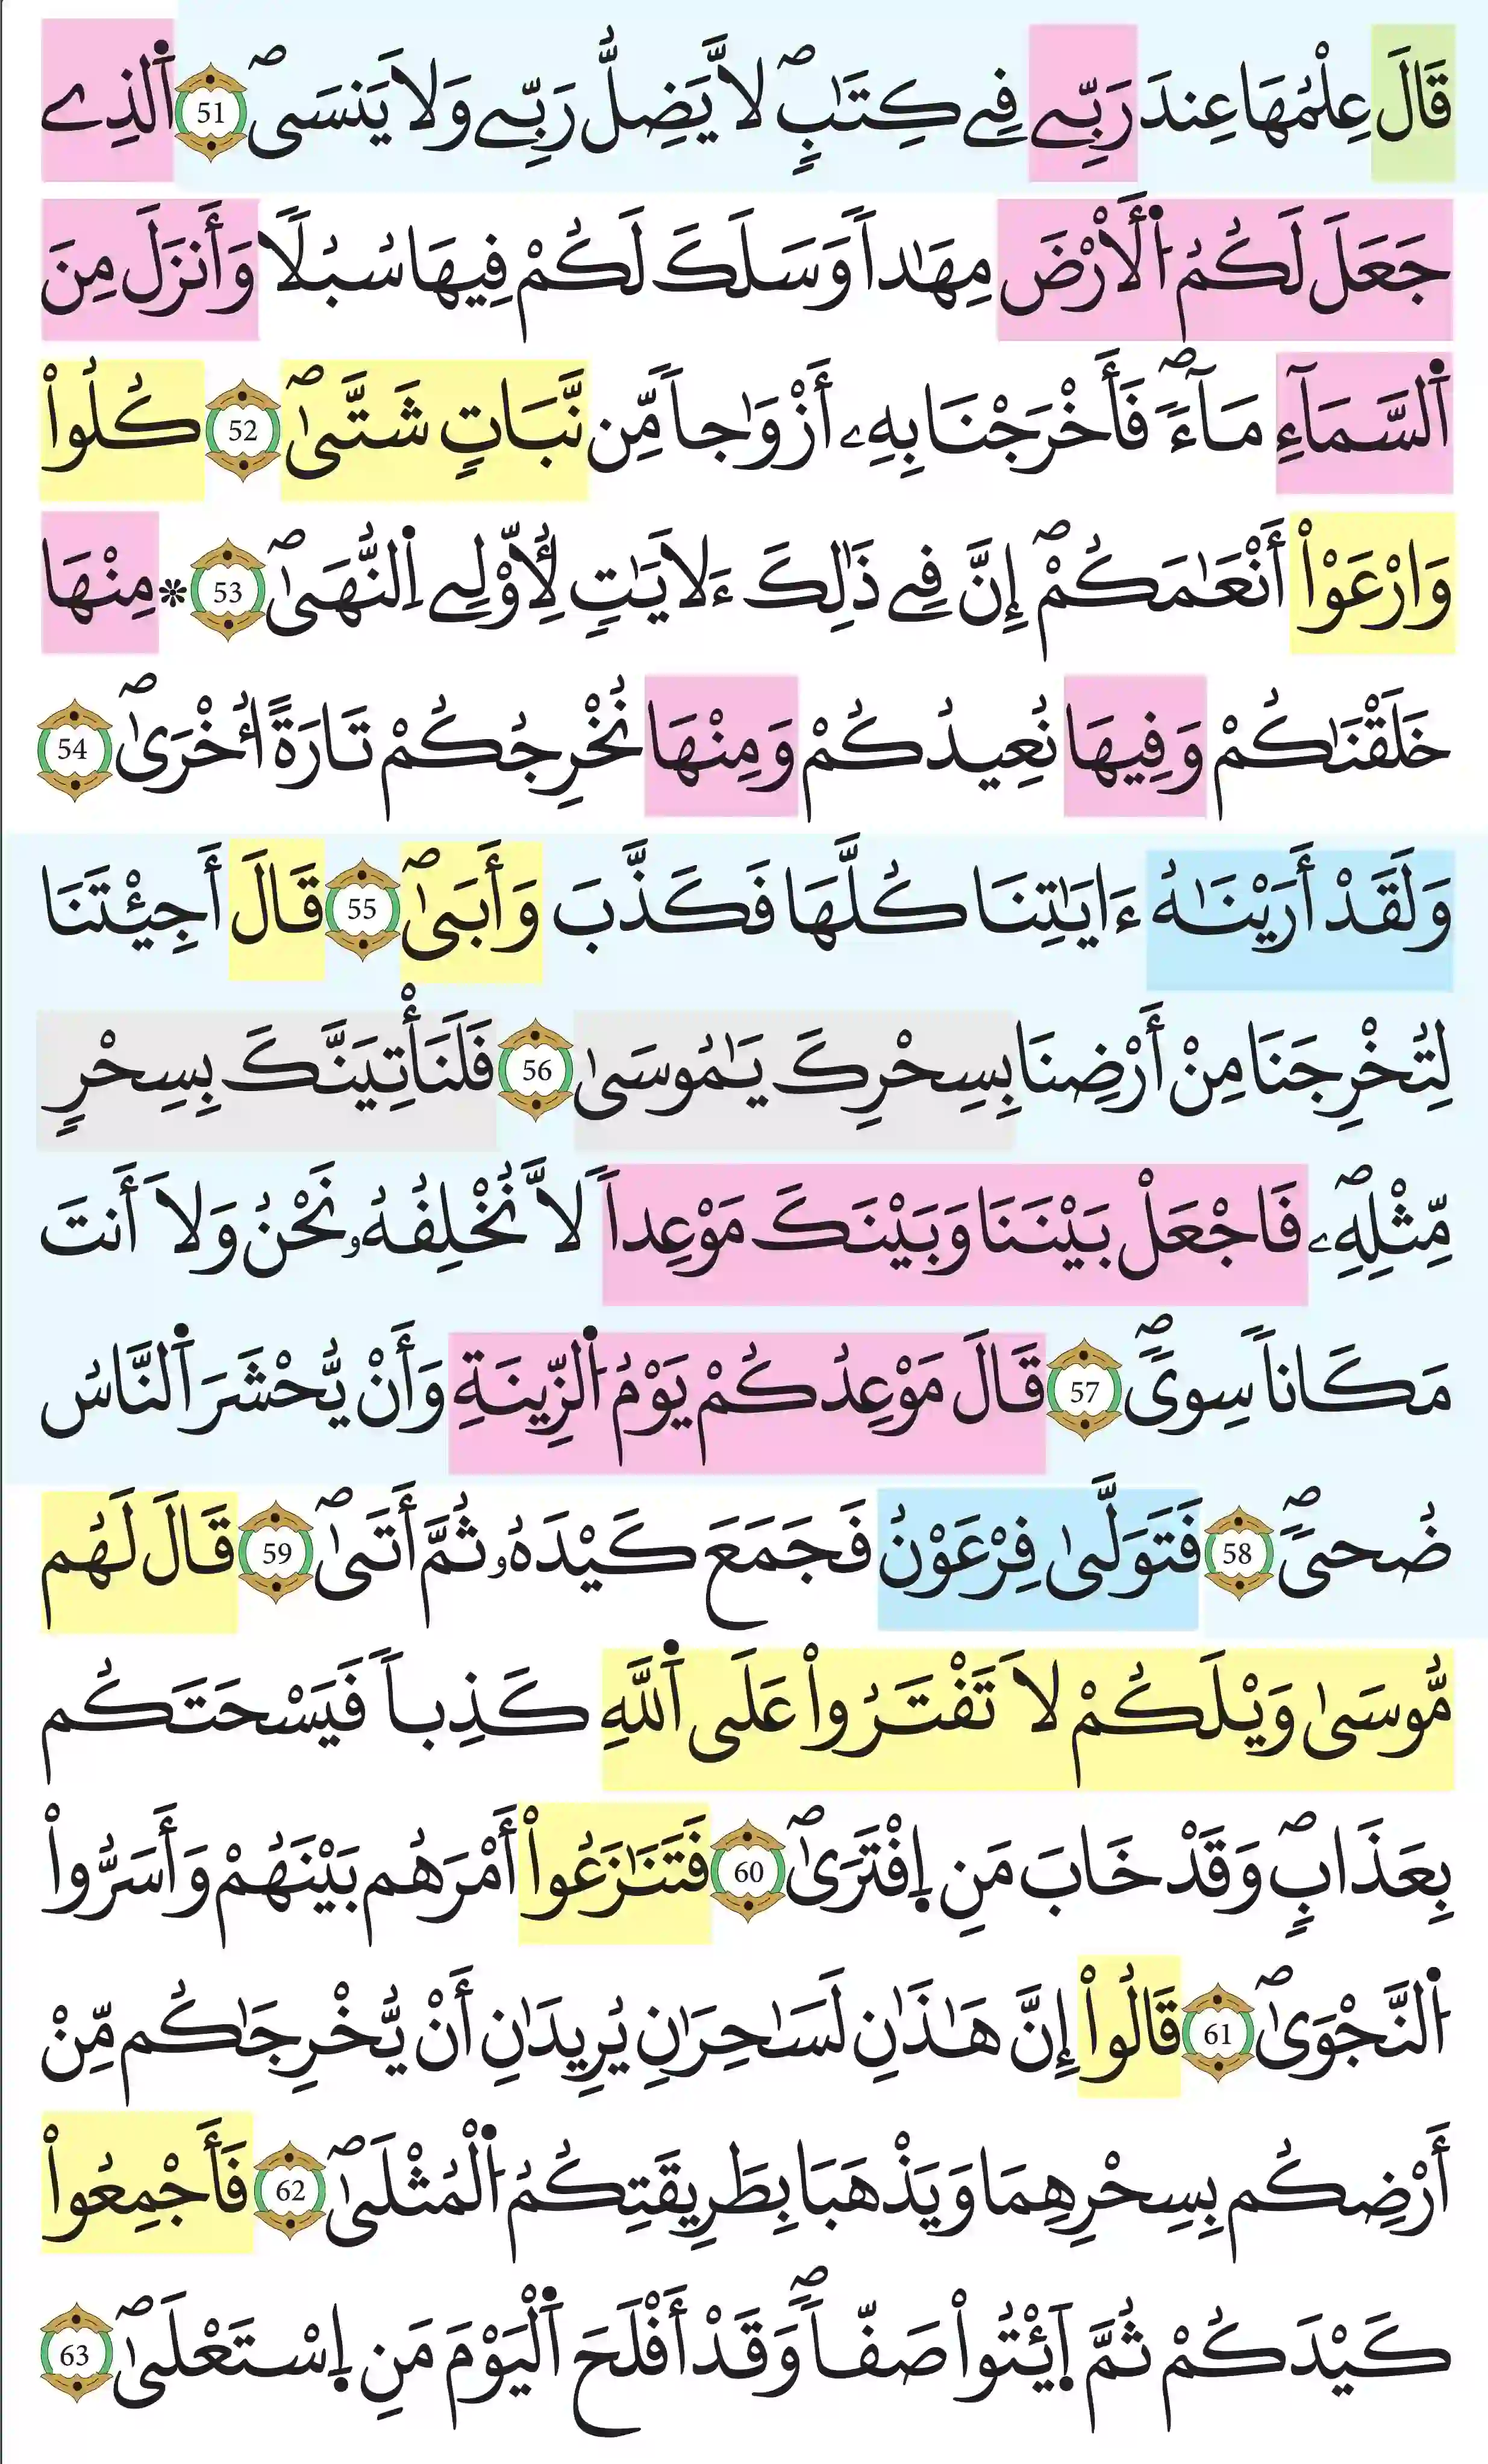 قَالَ عِلْمُهَا عِندَ رَبِّے فِے كِتَٰبٍۖ لَّا يَضِلُّ رَبِّے وَلَا يَنسَىۖ 51 اَ۬لذِے
جَعَلَ لَكُمُ اُ۬لَارْضَ مِهَٰداٗ وَسَلَكَ لَكُمْ فِيهَا سُبُلاٗ وَأَنزَلَ مِنَ
اَ۬لسَّمَآءِ مَآءٗۖ فَأَخْرَجْنَا بِهِۦٓ أَزْوَٰجاٗ مِّن نَّبَاتٖ شَتَّىٰۖ 52 كُلُواْ
وَارْعَوْاْ أَنْعَٰمَكُمْۖ إِنَّ فِے ذَٰلِكَ ءَلَايَٰتٖ لِّأُوْلِے اِ۬لنُّهَىٰۖ 53 ۞ مِنْهَا
خَلَقْنَٰكُمْ وَفِيهَا نُعِيدُكُمْ وَمِنْهَا نُخْرِجُكُمْ تَارَةً أُخْرَىٰۖ 54
وَلَقَدْ أَرَيْنَٰهُ ءَايَٰتِنَا كُلَّهَا فَكَذَّبَ وَأَبَىٰۖ 55 قَالَ أَجِئْتَنَا
لِتُخْرِجَنَا مِنْ أَرْضِنَا بِسِحْرِكَ يَٰمُوسَىٰ 56 فَلَنَأْتِيَنَّكَ بِسِحْرٖ
مِّثْلِهِۦۖ فَاجْعَلْ بَيْنَنَا وَبَيْنَكَ مَوْعِداٗ لَّا نُخْلِفُهُۥ نَحْنُ وَلَا أَنتَ
مَكَاناٗ سِوىٗۖ 57 قَالَ مَوْعِدُكُمْ يَوْمُ اُ۬لزِّينَةِ وَأَنْ يُّحْشَرَ اَ۬لنَّاسُ
ضُحىٗۖ 58 فَتَوَلَّىٰ فِرْعَوْنُ فَجَمَعَ كَيْدَهُۥ ثُمَّ أَتَىٰۖ 59 قَالَ لَهُم
مُّوسَىٰ وَيْلَكُمْ لَا تَفْتَرُواْ عَلَى اَ۬للَّهِ كَذِباٗ فَيَسْحَتَكُم
بِعَذَابٖۖ وَقَدْ خَابَ مَنِ اِ۪فْتَرَىٰۖ 60 فَتَنَٰزَعُواْ أَمْرَهُم بَيْنَهُمْ وَأَسَرُّواْ
اُ۬لنَّجْوَىٰۖ 61 قَالُواْ إِنَّ هَٰذَٰنِ لَسَٰحِرَٰنِ يُرِيدَٰنِ أَنْ يُّخْرِجَٰكُم مِّنْ
أَرْضِكُم بِسِحْرِهِمَا وَيَذْهَبَا بِطَرِيقَتِكُمُ اُ۬لْمُثْلَىٰۖ 62 فَأَجْمِعُواْ
كَيْدَكُمْ ثُمَّ اَ۪ئْتُواْ صَفّاٗۖ وَقَدْ أَفْلَحَ اَ۬لْيَوْمَ مَنِ اِ۪سْتَعْلَىٰۖ 63